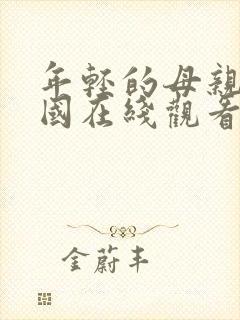 年轻的母親
國在綫觀看
金蔚丰